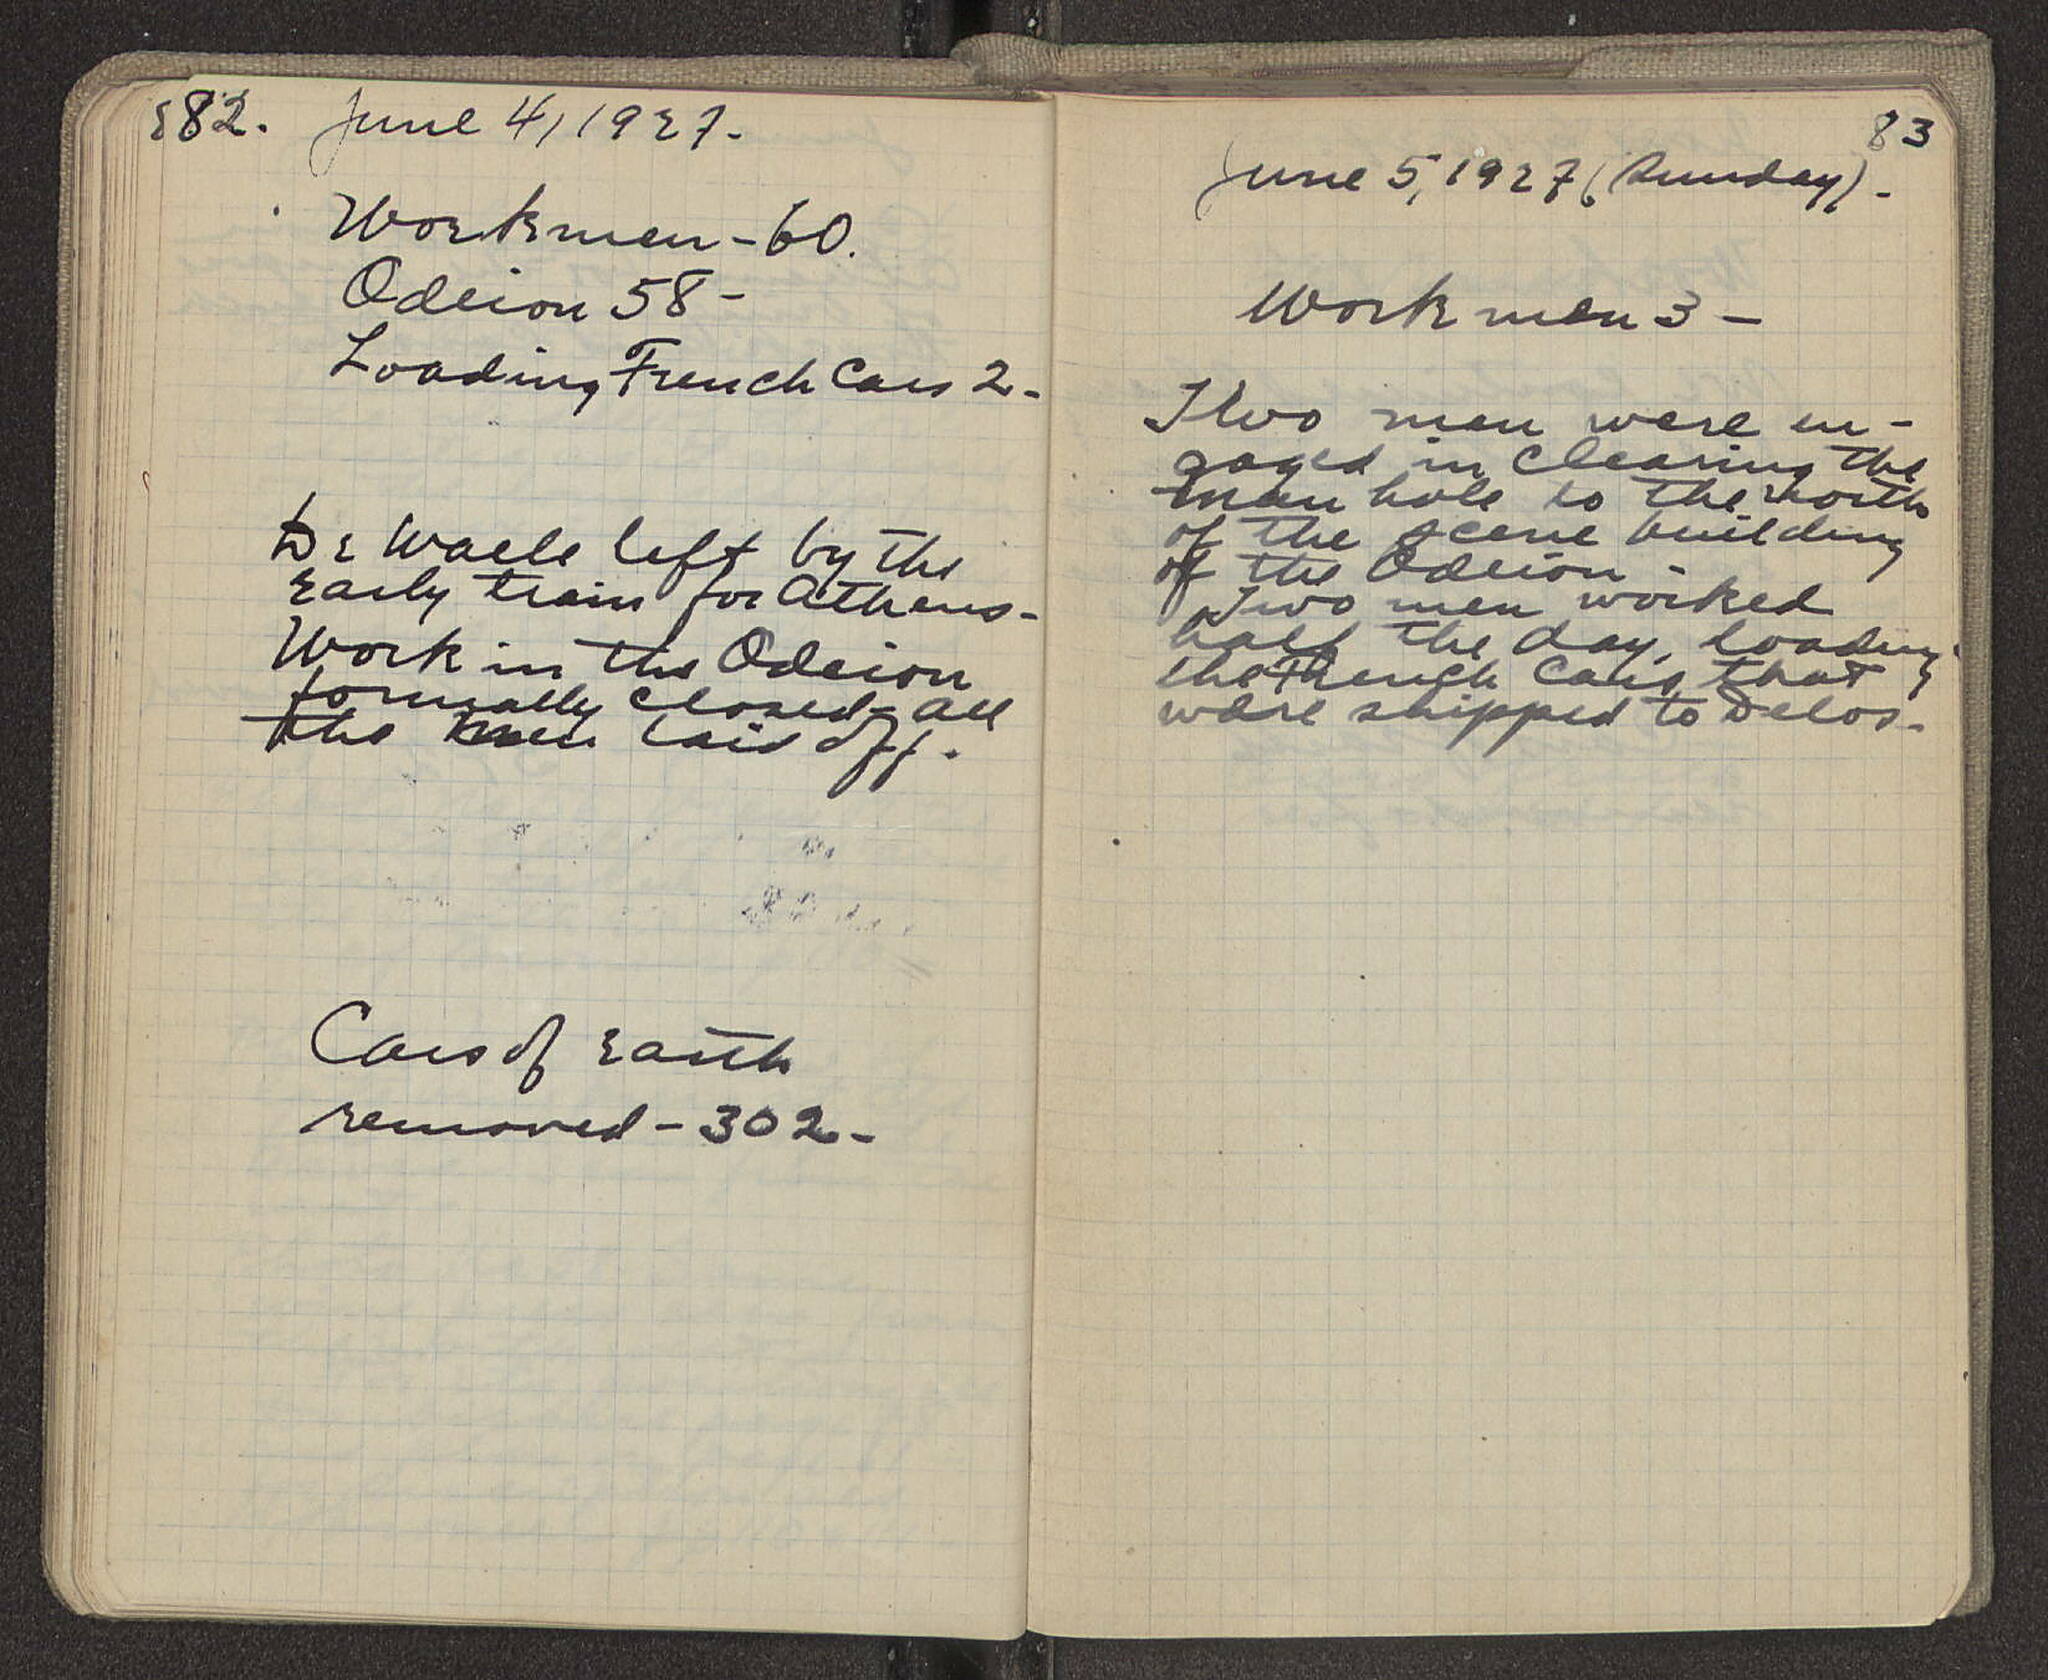 82. June 4, 1927.
Workmen - 60.
Odeion 58 -
Loading French Cars 2 -
De Waele left by the
early train for Athens -
Work in the Odeion
formally closed - all
the men laid off.
Cars of earth
removed - 302 -
83
June 5, 1927 (Sunday) -
Workmen 3 -
Two men were en-
gaged in clearing the
man hole to the north
of the scene building
of the Odeion -
Two men worked
half the day, loading
the French Cars that
were shipped to Delos -